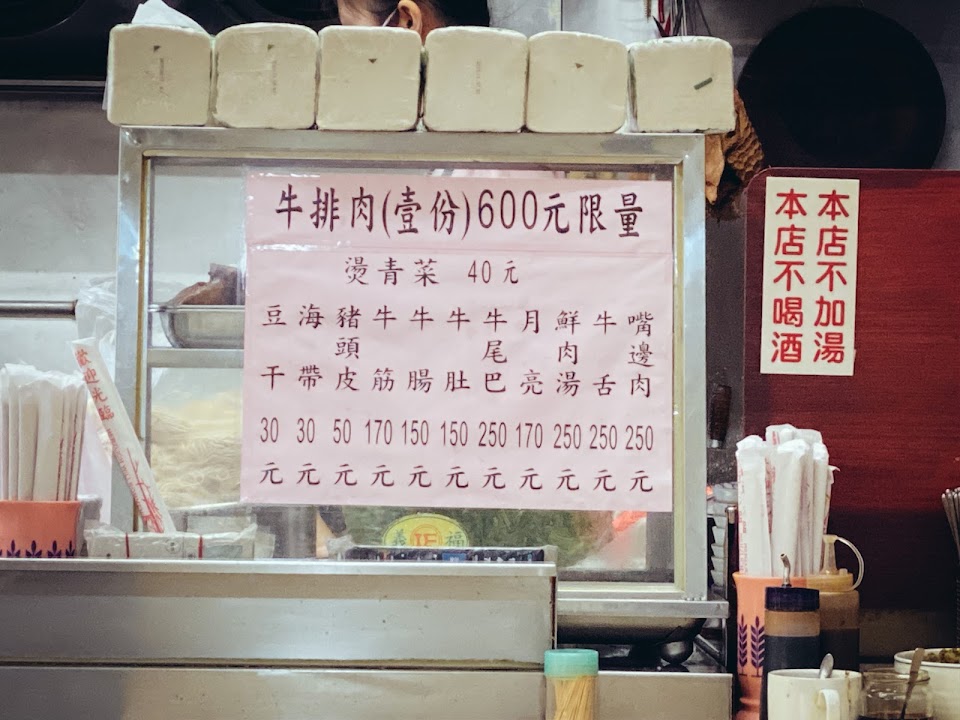 牛排肉(壹份)600元限量
燙青菜 40元
豆干 30元
海帶 30元
豬頭皮 50元
牛筋 170元
牛腸 150元
牛肚 150元
牛尾巴 250元
月亮 170元
鮮肉湯 250元
牛舌 250元
嘴邊肉 250元
本店不加湯
本店不喝酒
歡迎光臨